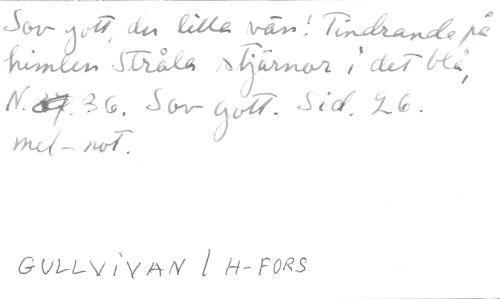 Sov gott, du lilla vän! Tindrande på
himlen stråla stjärnor i det blå,
N. 36. Sov gott. Sid. 26.
mel-not.
GULLVIVAN / H-FORS